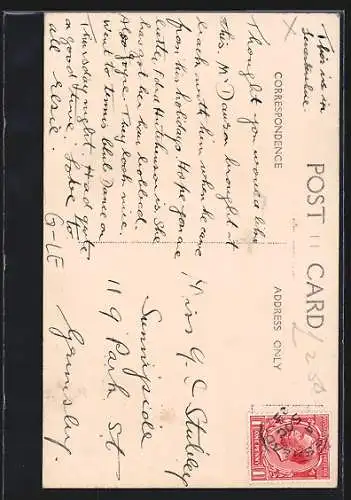 POST CARD
CORRESPONDENCE
ADDRESS ONLY
This is in
X
Thought you would like
this. Mr Dawson brought it
back with him when he came
from his holidays. Hope you are
better. Ida Hutchinson is. She
has got her hair bobbed.
Also Joyce. They look nice.
Went to tennis Club Dance on
Thursday night. Had quite
a good time. Love to
all Elsie.
Miss G. C. Stubley
Sunnyside
119 Park St
Grimsby.
ONE PENNY